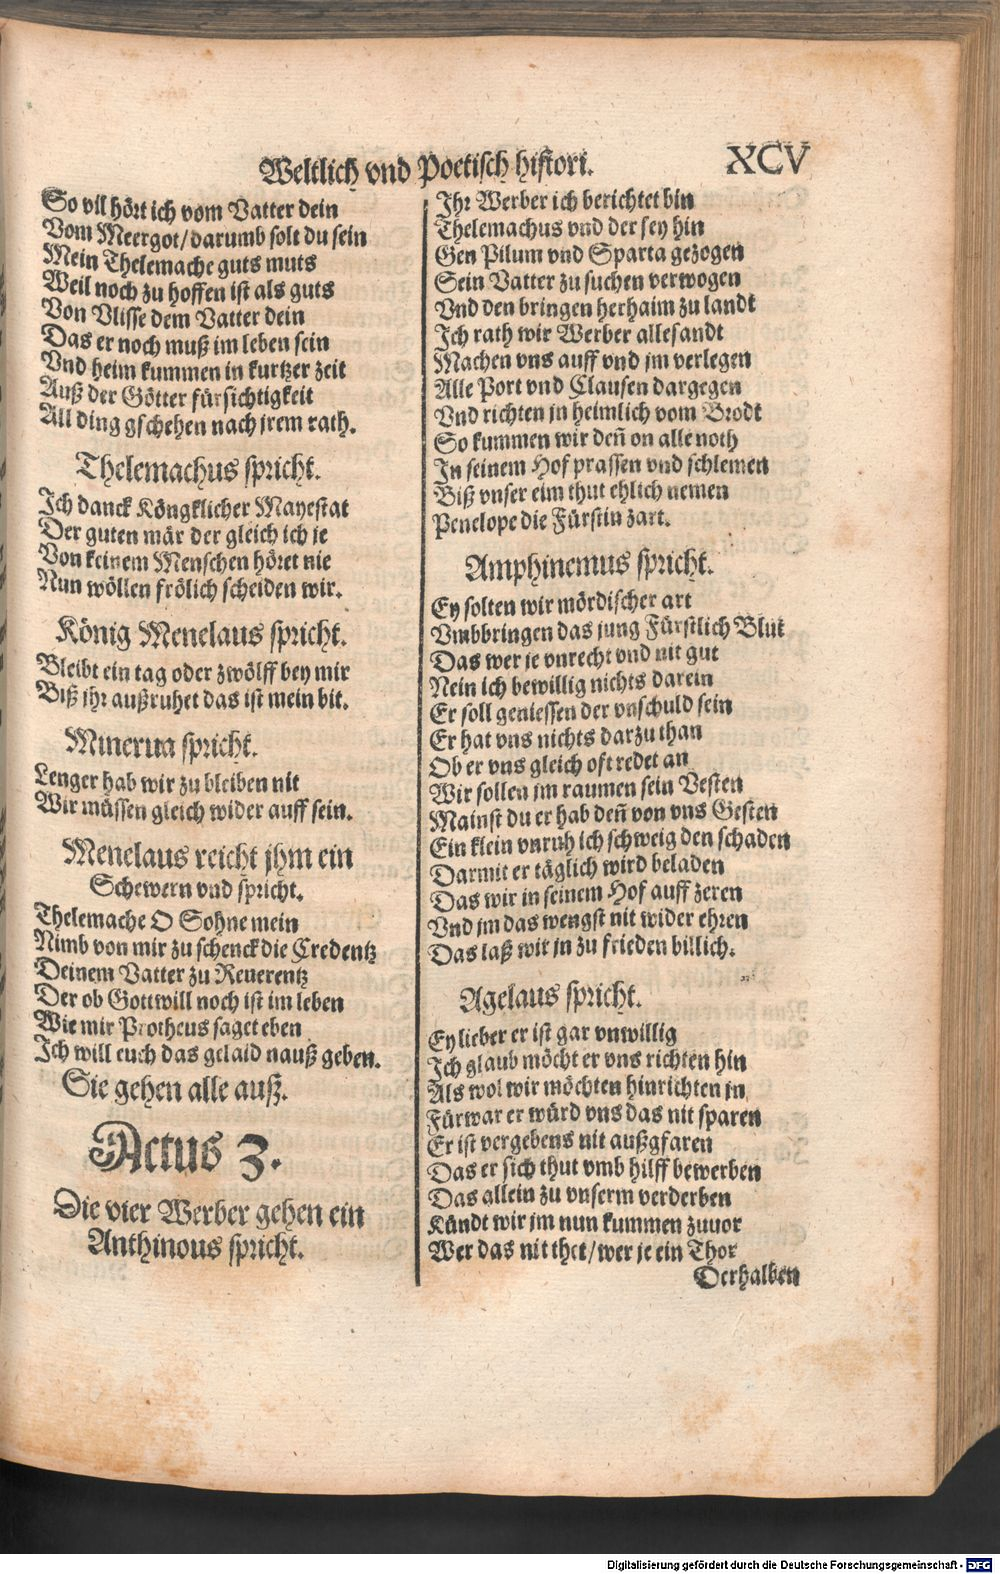 Weltlich vnd Poetisch histori. XCV
So vil hört ich vom Vatter dein
Vom Meergot/darumb solt du sein
Mein Thelemache guts muts
Weil noch zu hoffen ist als guts
Von Vlisse dem Vatter dein
Das er noch muß im leben sein
Vnd heim kummen in kurtzer zeit
Auß der Götter fürsichtigkeit
All ding gschehen nach jrem rath.
Thelemachus spricht.
Ich danck Köngklicher Mayestat
Der guten mär der gleich ich je
Von keinem Menschen höret nie
Nun wöllen frölich scheiden wir.
König Menelaus spricht.
Bleibt ein tag oder zwölff bey mir
Biß jhr außruhet das ist mein bit.
Minerua spricht.
Lenger hab wir zu bleiben nit
Wir müssen gleich wider auff sein.
Menelaus reicht jhm ein
Schewern vnd spricht.
Thelemache O Sohne mein
Nimb von mir zu schenck die Credentz
Deinem Vatter zu Reuerentz
Der ob Gott will noch ist im leben
Wie mir Protheus saget eben
Ich will euch das gelaid nauß geben.
Sie gehen alle auß.
Actus 3.
Die vier Werber gehen ein
Anthinous spricht.
Ihr Werber ich berichtet bin
Thelemachus vnd der sey hin
Gen Pilum vnd Sparta gezogen
Sein Vatter zu suchen verwogen
Vnd den bringen herhaim zu landt
Ich rath wir Werber allesandt
Machen vns auff vnd jm verlegen
Alle Port vnd Clausen dargegen
Vnd richten jn heimlich vom Brodt
So kummen wir deñ on alle noth
In seinem Hof prassen vnd schlemen
Biß vnser eim thut ehlich nemen
Penelope die Fürstin zart.
Amphinemus spricht.
Ey solten wir mördischer art
Vmbbringen das jung Fürstlich Blut
Das wer je vnrecht vnd nit gut
Nein ich bewillig nichts darein
Er soll geniessen der vnschuld sein
Er hat vns nichts darzu than
Ob er vns gleich oft redet an
Wir sollen jm raumen sein Vesten
Mainst du er hab deñ von vns Gesten
Ein klein vnruh ich schweig den schaden
Darmit er täglich wird beladen
Das wir in seinem Hof auff zeren
Vnd jm das wengst nit wider ehren
Das laß wir jn zu frieden billich.
Agelaus spricht.
Ey lieber er ist gar vnwillig
Ich glaub möcht er vns richten hin
Als wol wir möchten hinrichten jn
Fürwar er würd vns das nit sparen
Er ist vergebens nit außgfaren
Das er sich thut vmb hilff bewerben
Das allein zu vnserm verderben
Kündt wir jm nun kummen zuuor
Wer das nit thet/wer je ein Thor
Derhalben
Digitalisierung gefördert durch die Deutsche Forschungsgemeinschaft - DFG